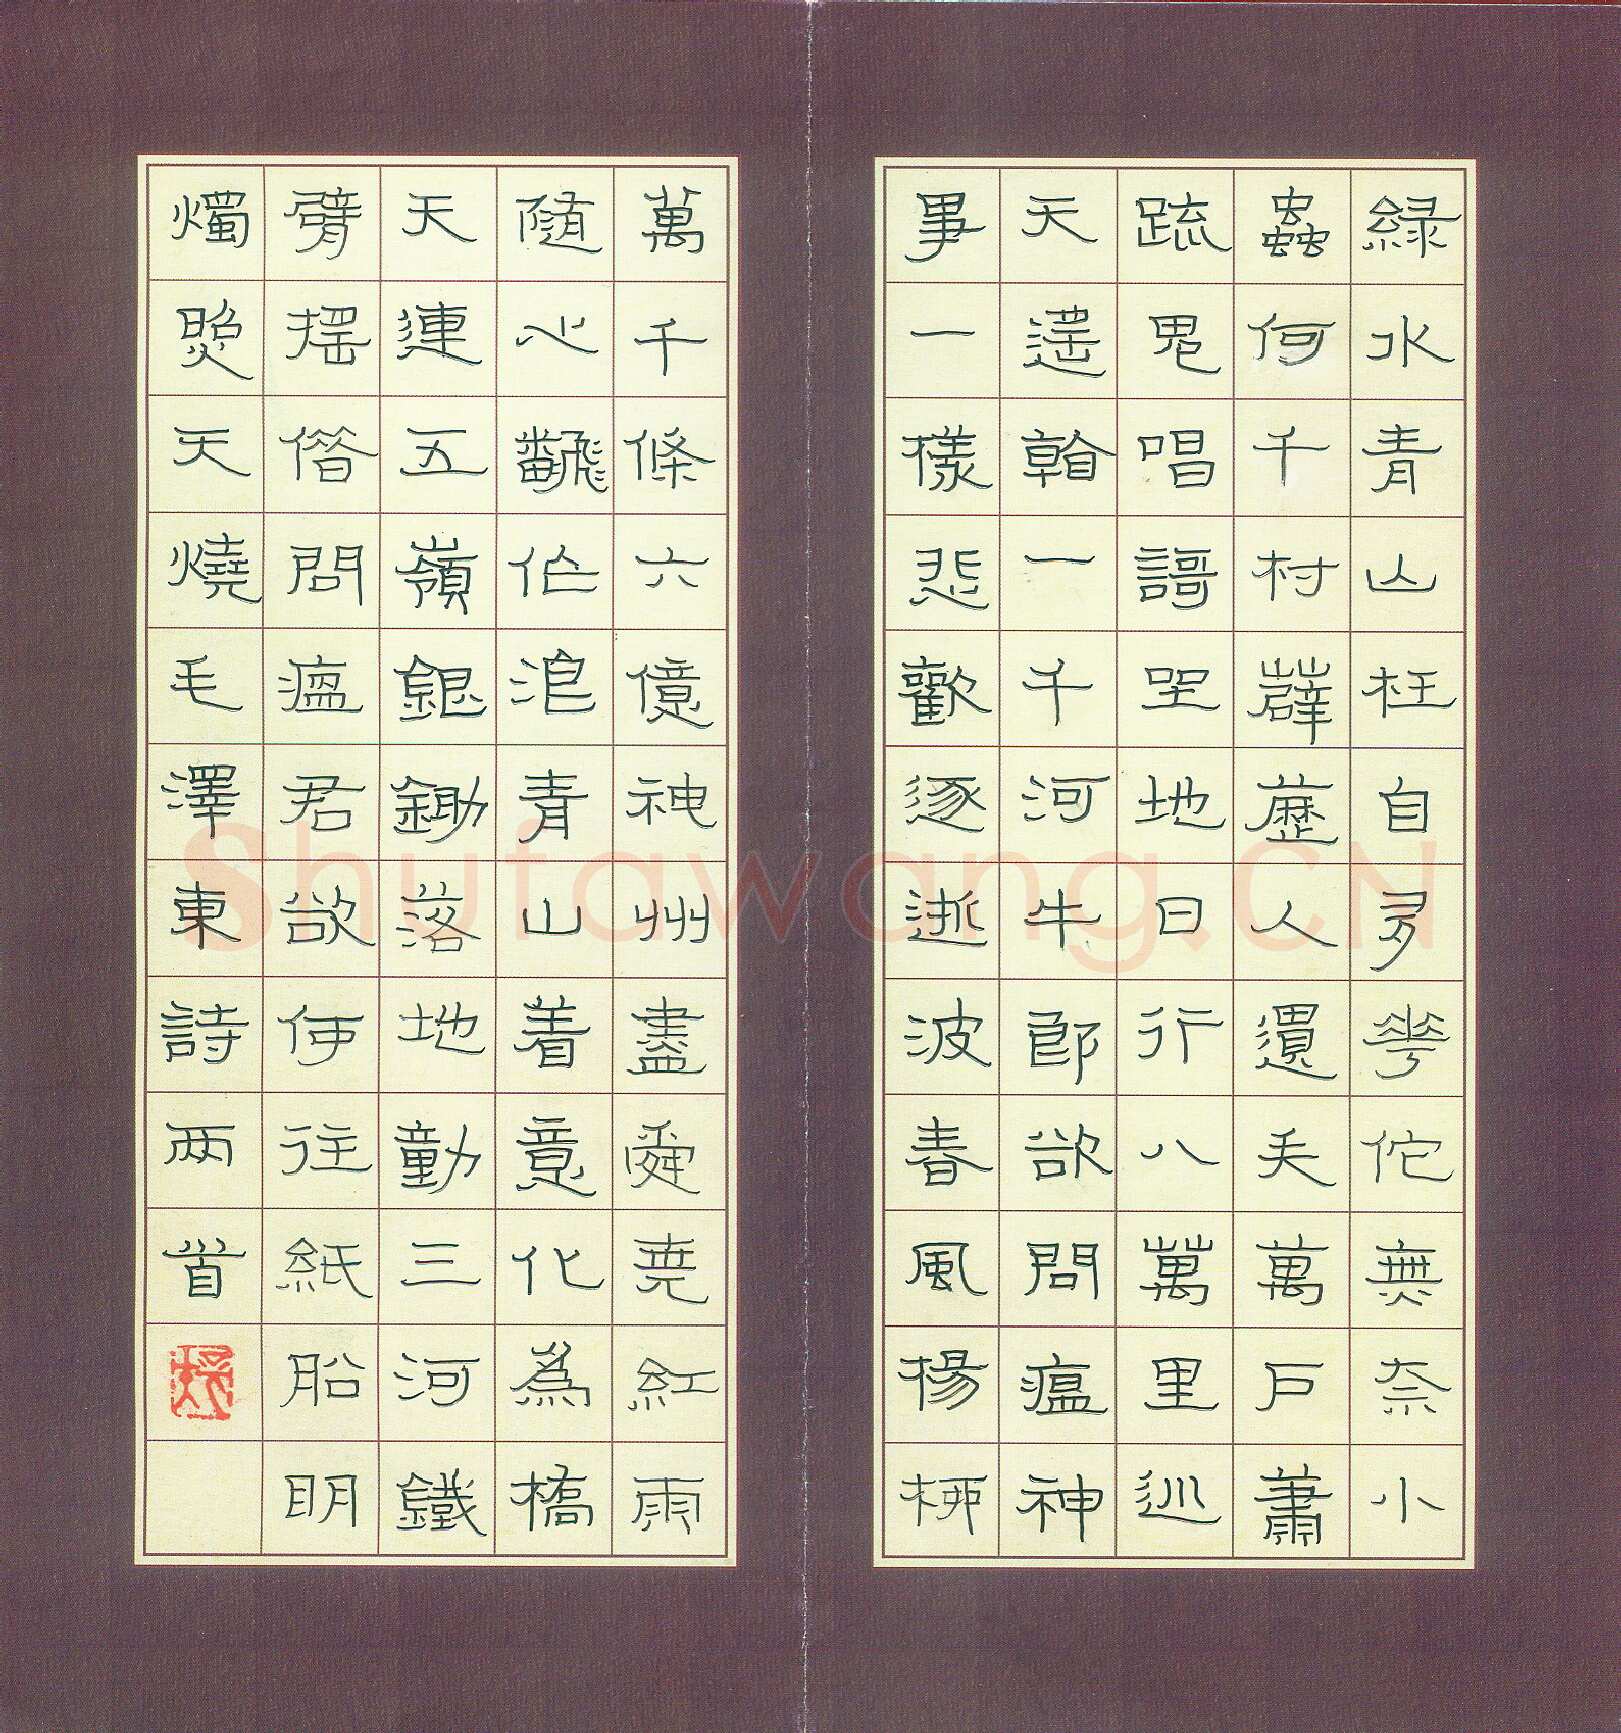 緑水青山枉自多華佗無奈小
蟲何千村薜藶人遺矢萬戶蕭
疏鬼唱謌坐地日行八萬里巡
天遥看一千河牛郎欲問瘟神
事一樣悲歡逐逝波春風楊柳
萬千條六億神州盡舜堯紅雨
隨心飜作浪青山着意化為橋
天連五嶺銀鋤落地動三河鐵
臂搖借問瘟君欲使往紙船明
燭照天燒毛澤東詩两首
Shufawang.CN